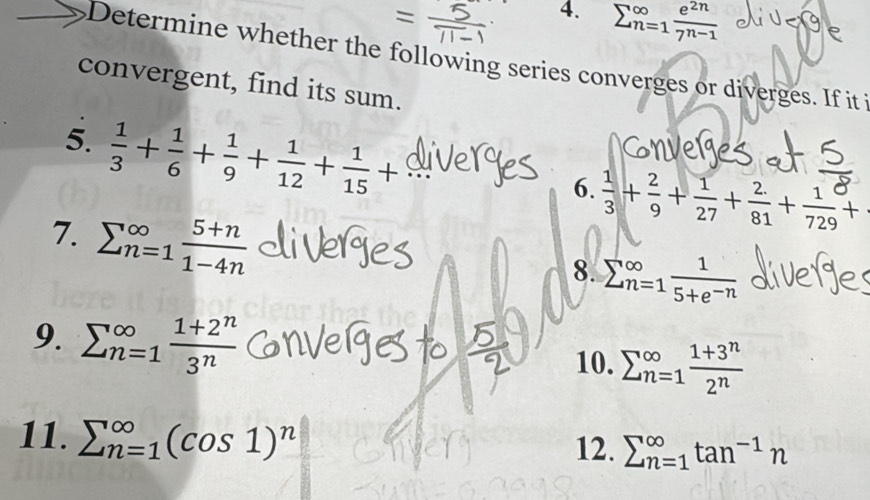 = 5/π-1
4. ∑_{n=1}^{∞} e^{2n}/7^{n-1} diverge
Determine whether the following series converges or diverges. If it i
convergent, find its sum.
5. 1/3 + 1/6 + 1/9 + 1/12 + 1/15 + ... diverges
converges at 5/8
6. 1/3 + 2/9 + 1/27 + 2./81 + 1/729 +
7. ∑_{n=1}^{∞} 5+n/1-4n diverges
8. ∑_{n=1}^{∞} 1/5+e^{-n} diverges
9. ∑_{n=1}^{∞} 1+2^n/3^n converges to 5/2
10. ∑_{n=1}^{∞} 1+3^n/2^n
11. ∑_{n=1}^{∞} (cos 1)^n
12. ∑_{n=1}^{∞} tan^{-1} n
Abdel Basel